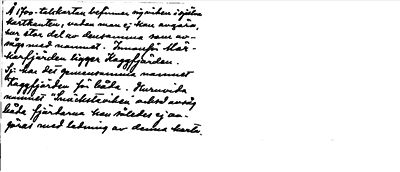 Å 1700-talskartan befinner sig viken i själva
kartkanten, vadan man ej kan avgöra,
hur stor del av densamma som av-
sågs med namnet. Innanför Mär-
karfjärden ligger Kaggfjärden.
Ej har det gemensamma namnet
Kaggfjärden för båda. Huruvida
namnet "Snäcksteviken" också avsåg
båda fjärdarna kan således ej av-
göras med ledning av denna karta.